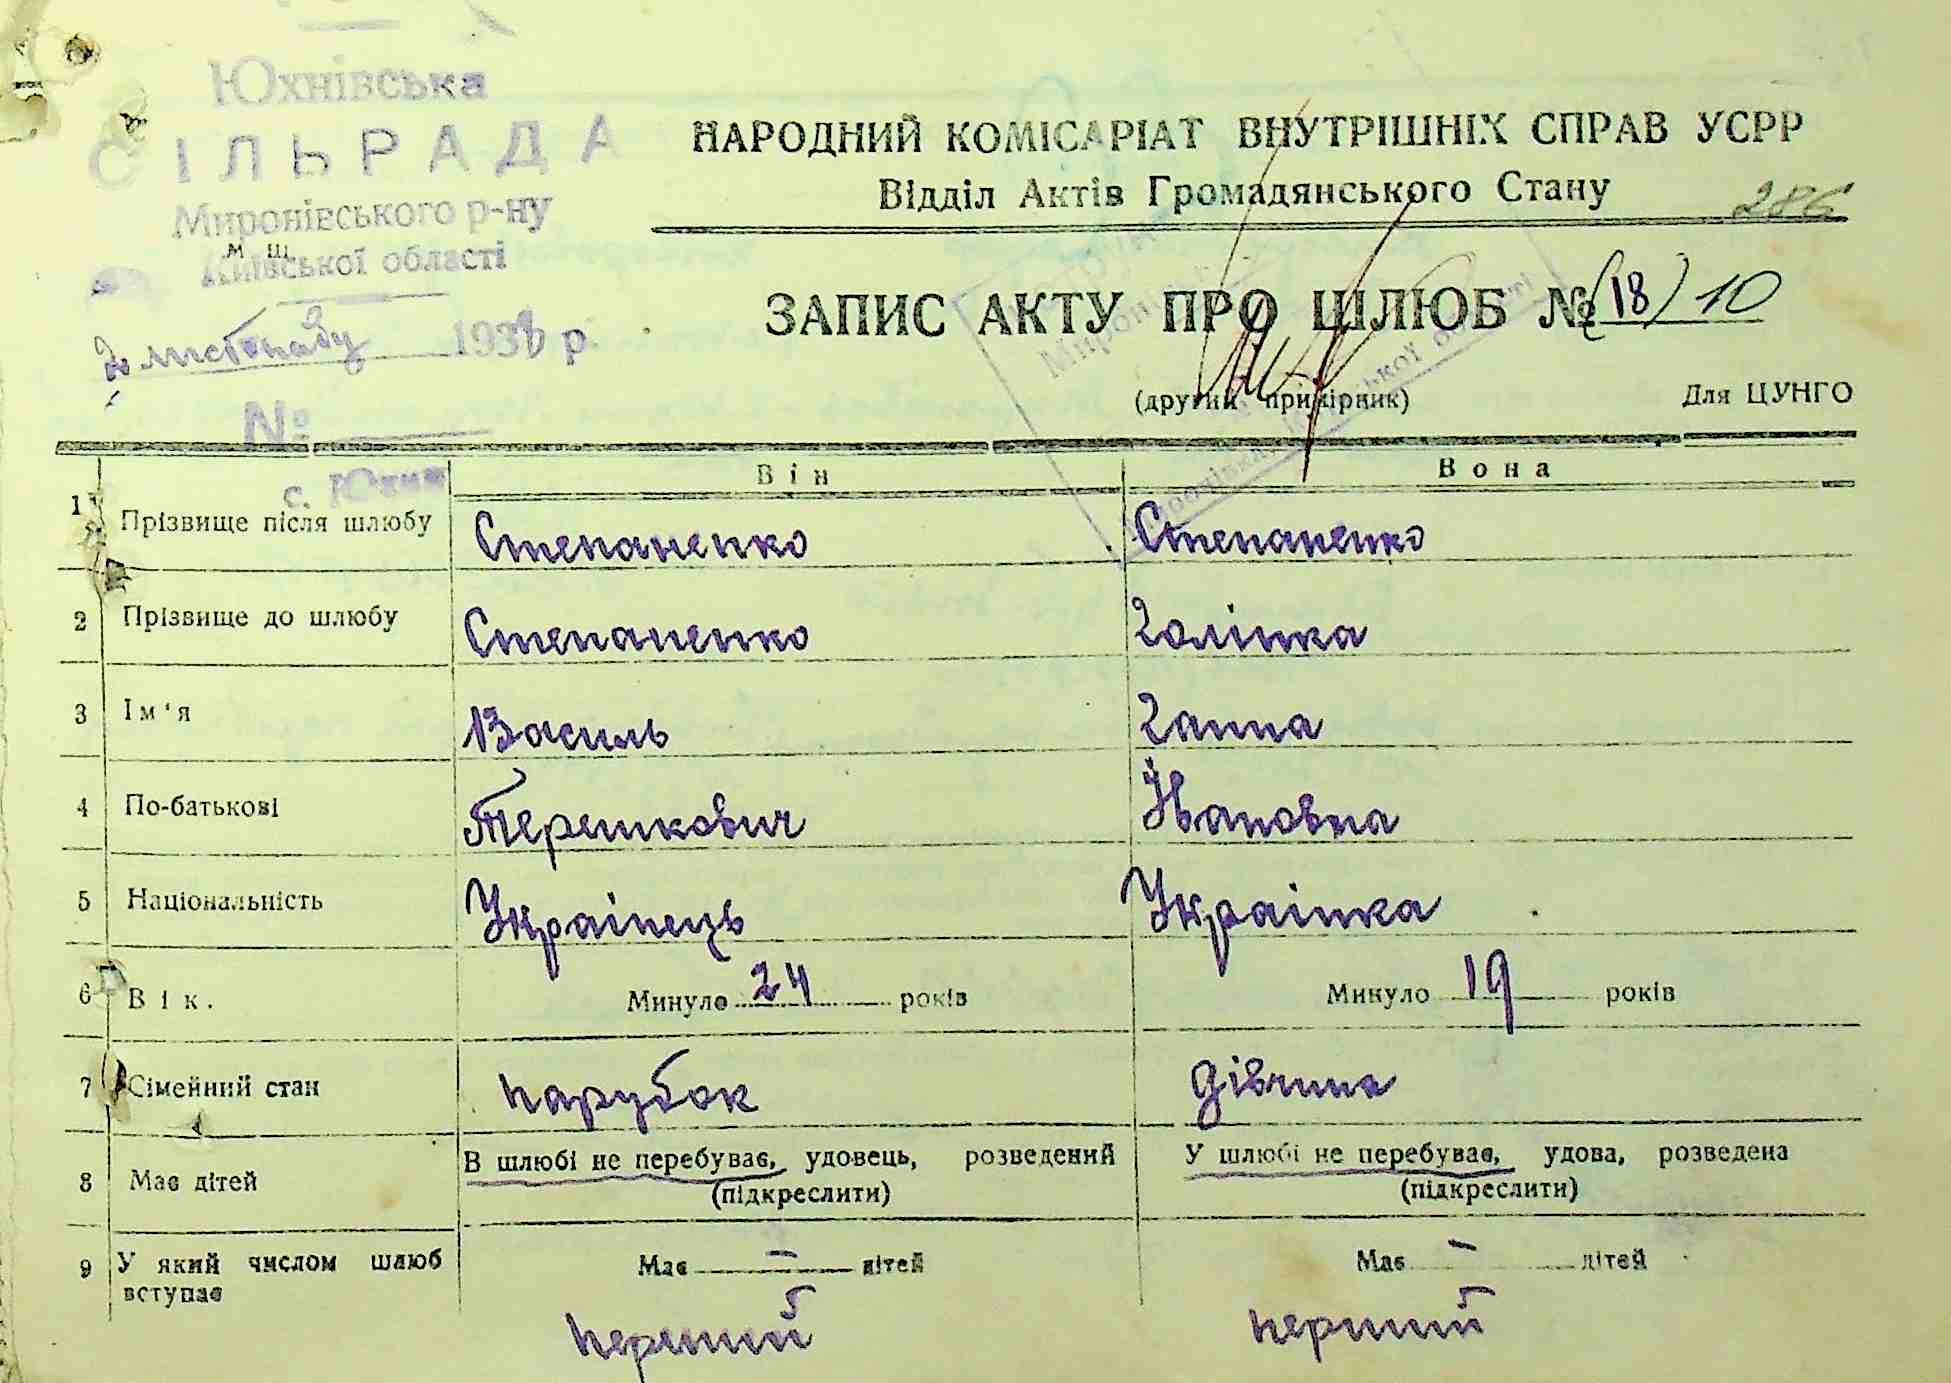 Юхнівська
СІЛЬРАДА
Миронівського р-ну
Київської області
листопаду 1938 р.
№
с. Юхни
НАРОДНИЙ КОМІСАРІАТ ВНУТРІШНІХ СПРАВ УСРР
Відділ Актів Громадянського Стану
286
ЗАПИС АКТУ ПРО ШЛЮБ № (18) 10
(другий примірник) Для ЦУНГО
Він Вона
1 Прізвище після шлюбу Степаненко Степаненко
2 Прізвище до шлюбу Степаненко Голінка
3 Ім'я Василь Ганна
4 По-батькові Терешкович Івановна
5 Національність Українець Українка
6 Вік. Минуло 24 років Минуло 19 років
7 Сімейний стан парубок дівчина
В шлюбі не перебуває, удовець, розведений У шлюбі не перебуває, удова, розведена
8 Має дітей (підкреслити) (підкреслити)
9 У який числом шлюб Має — дітей Має — дітей
вступає
перший перший